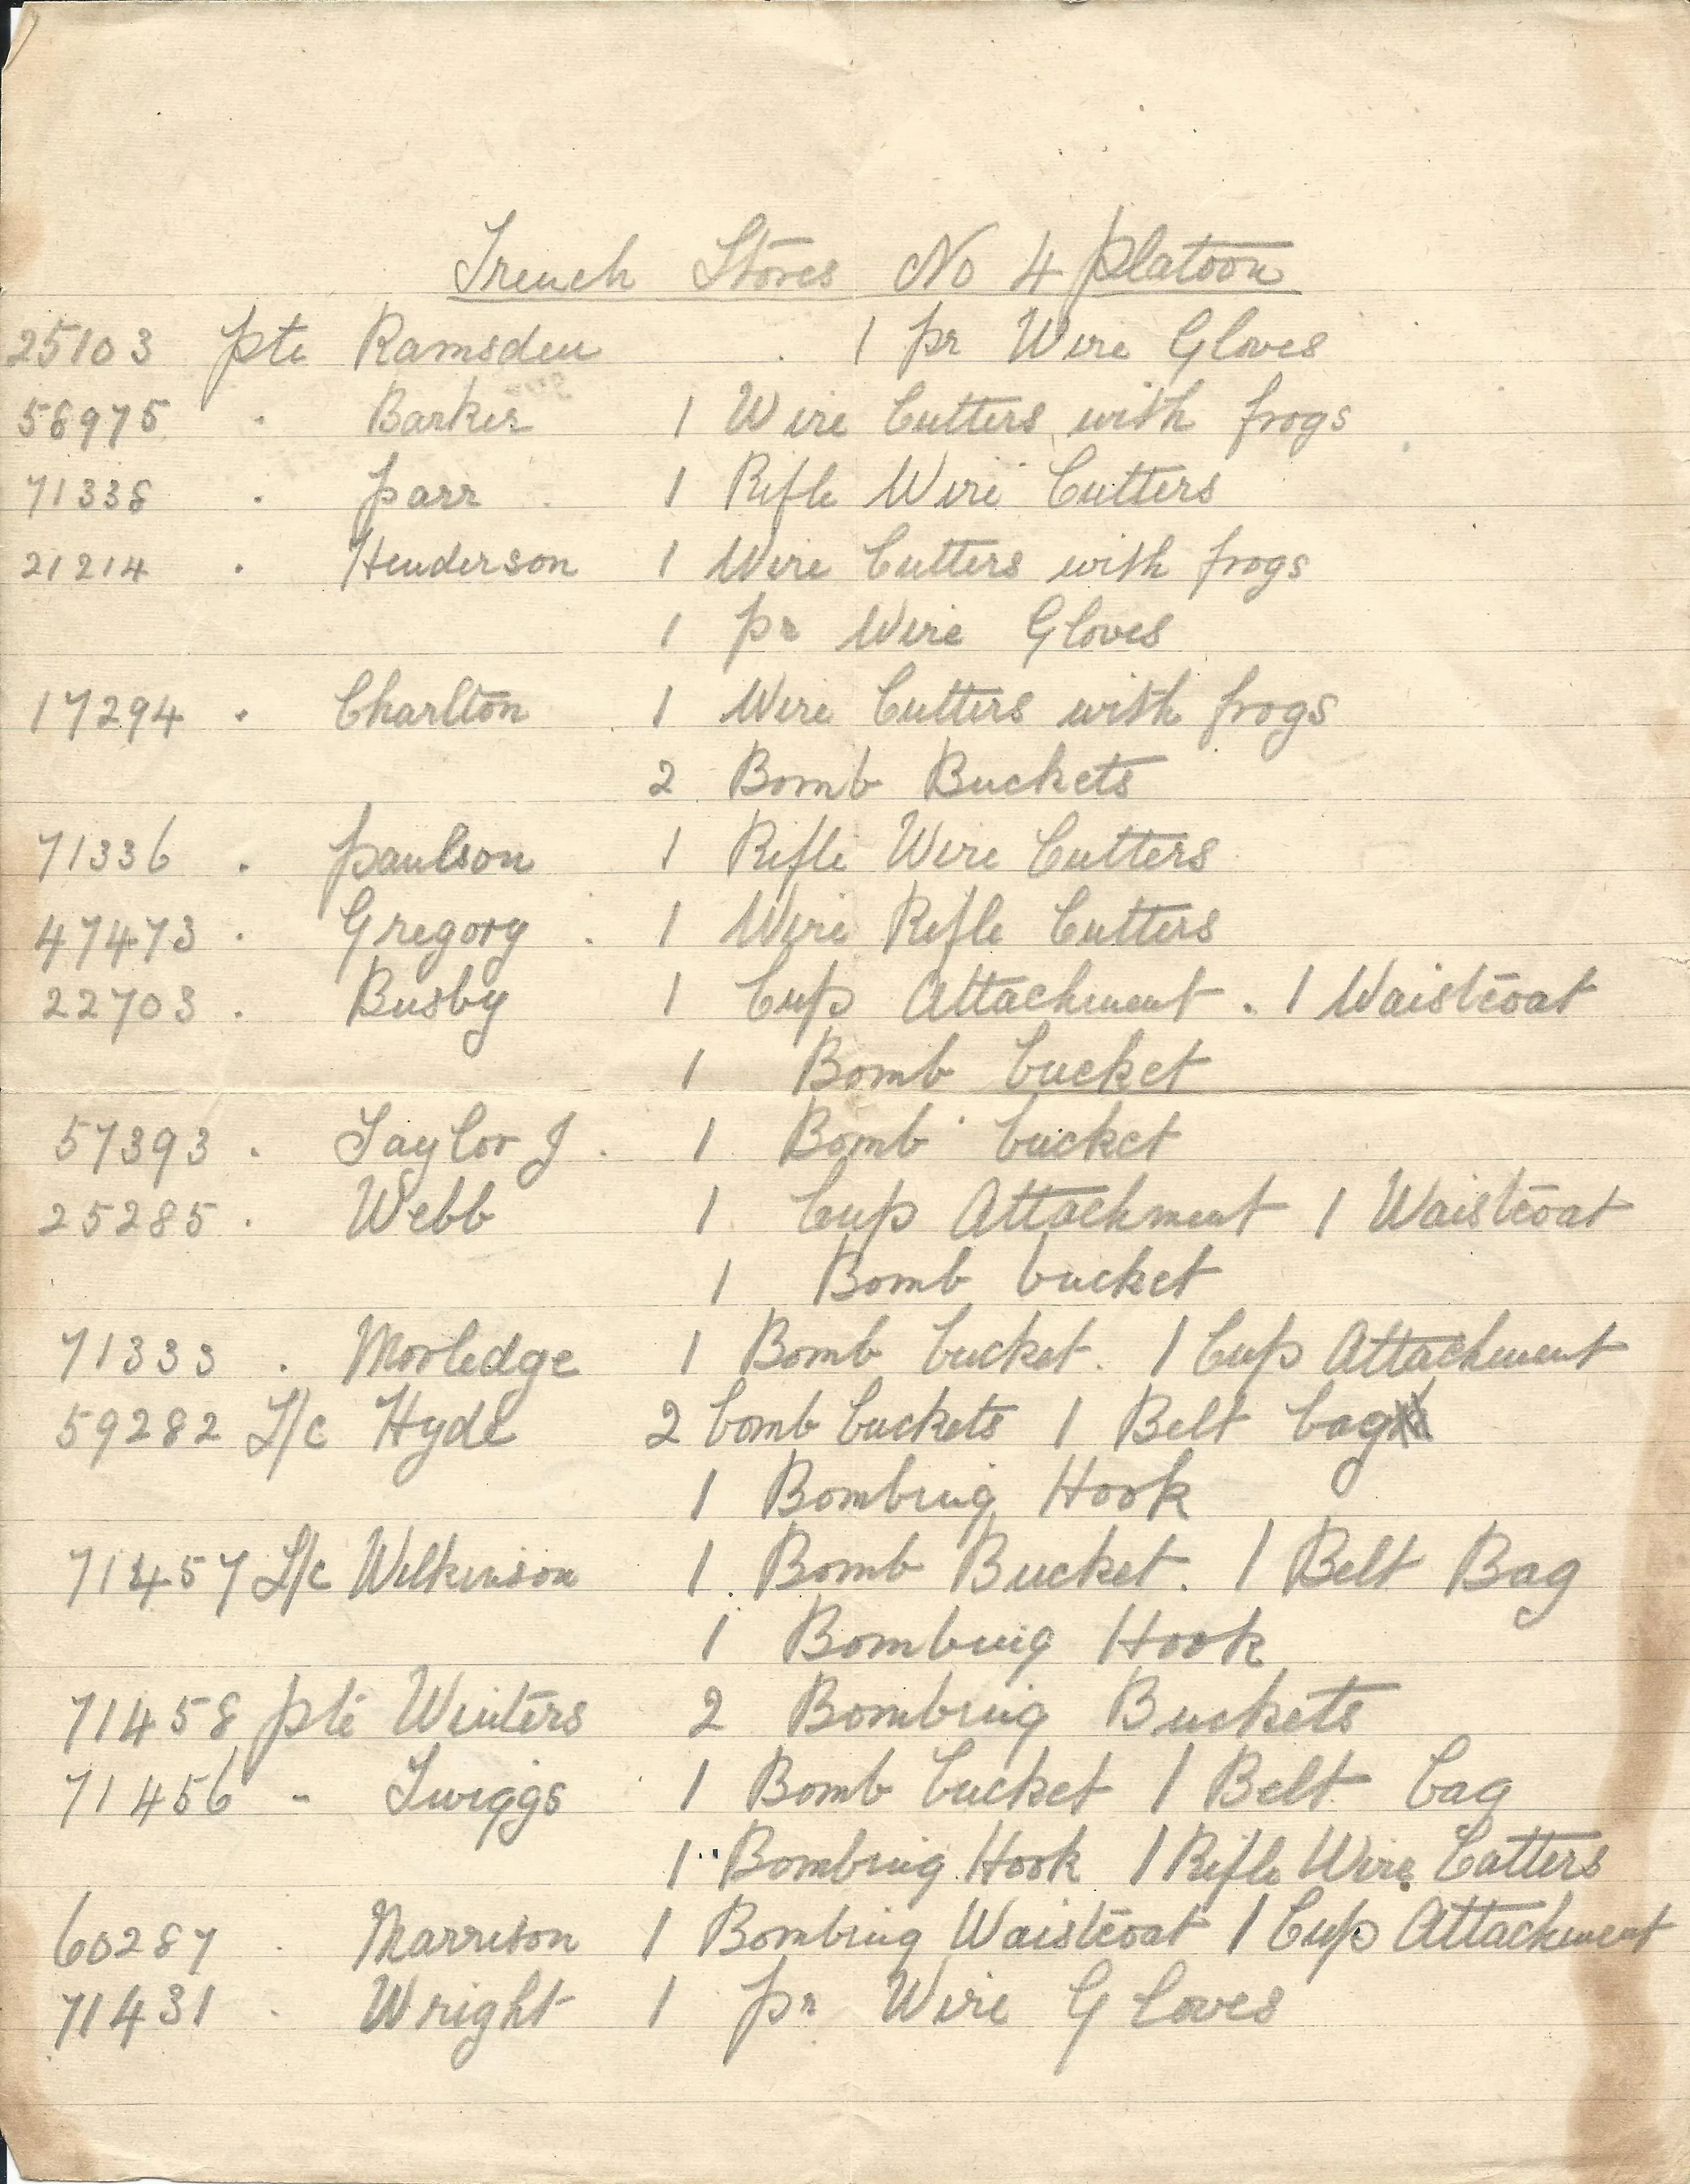 Trench Stores No 4 Platoon
25103 Pte Ramsden . 1 pr Wire Gloves
58975 . Barker 1 Wire Cutters with frogs
71338 . Parr 1 Rifle Wire Cutters
21214 . Henderson 1 Wire Cutters with frogs
1 pr Wire Gloves
17294 . Charlton 1 Wire Cutters with frogs
2 Bomb Buckets
71336 . Paulson 1 Rifle Wire Cutters
47473 . Gregory . 1 Wire Rifle Cutters
22703 . Busby 1 Cup Attachment . 1 Waistcoat
1 Bomb bucket
57393 . Taylor J . 1 Bomb bucket
25285 . Webb 1 Cup Attachment 1 Waistcoat
1 Bomb bucket
71333 . Morledge 1 Bomb bucket. 1 Cup Attachment
59282 L/c Hyde 2 bomb buckets 1 Belt bag
1 Bombing Hook
71457 L/c Wilkinson 1 Bomb Bucket. 1 Belt Bag
1 Bombing Hook
71458 Pte Winters 2 Bombing Buckets
71456 - Twiggs 1 Bomb bucket 1 Belt bag
1 Bombing Hook 1 Rifle Wire Cutters
60287 . Marrison 1 Bombing Waistcoat 1 Cup Attachment
71431 . Wright 1 pr Wire Gloves